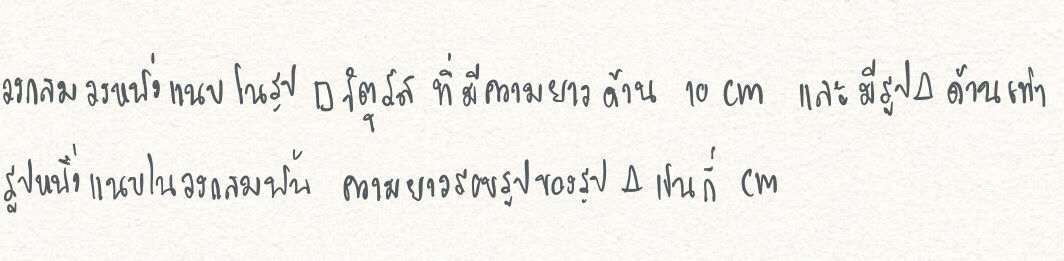 วงกลมวงหนึ่งแนบในรูป □ จัตุรัส ที่มีความยาวด้าน 10 cm และมีรูป △ ด้านเท่า
รูปหนึ่งแนบในวงกลมนั้น ความยาวรอบรูปของรูป △ เป็นกี่ cm